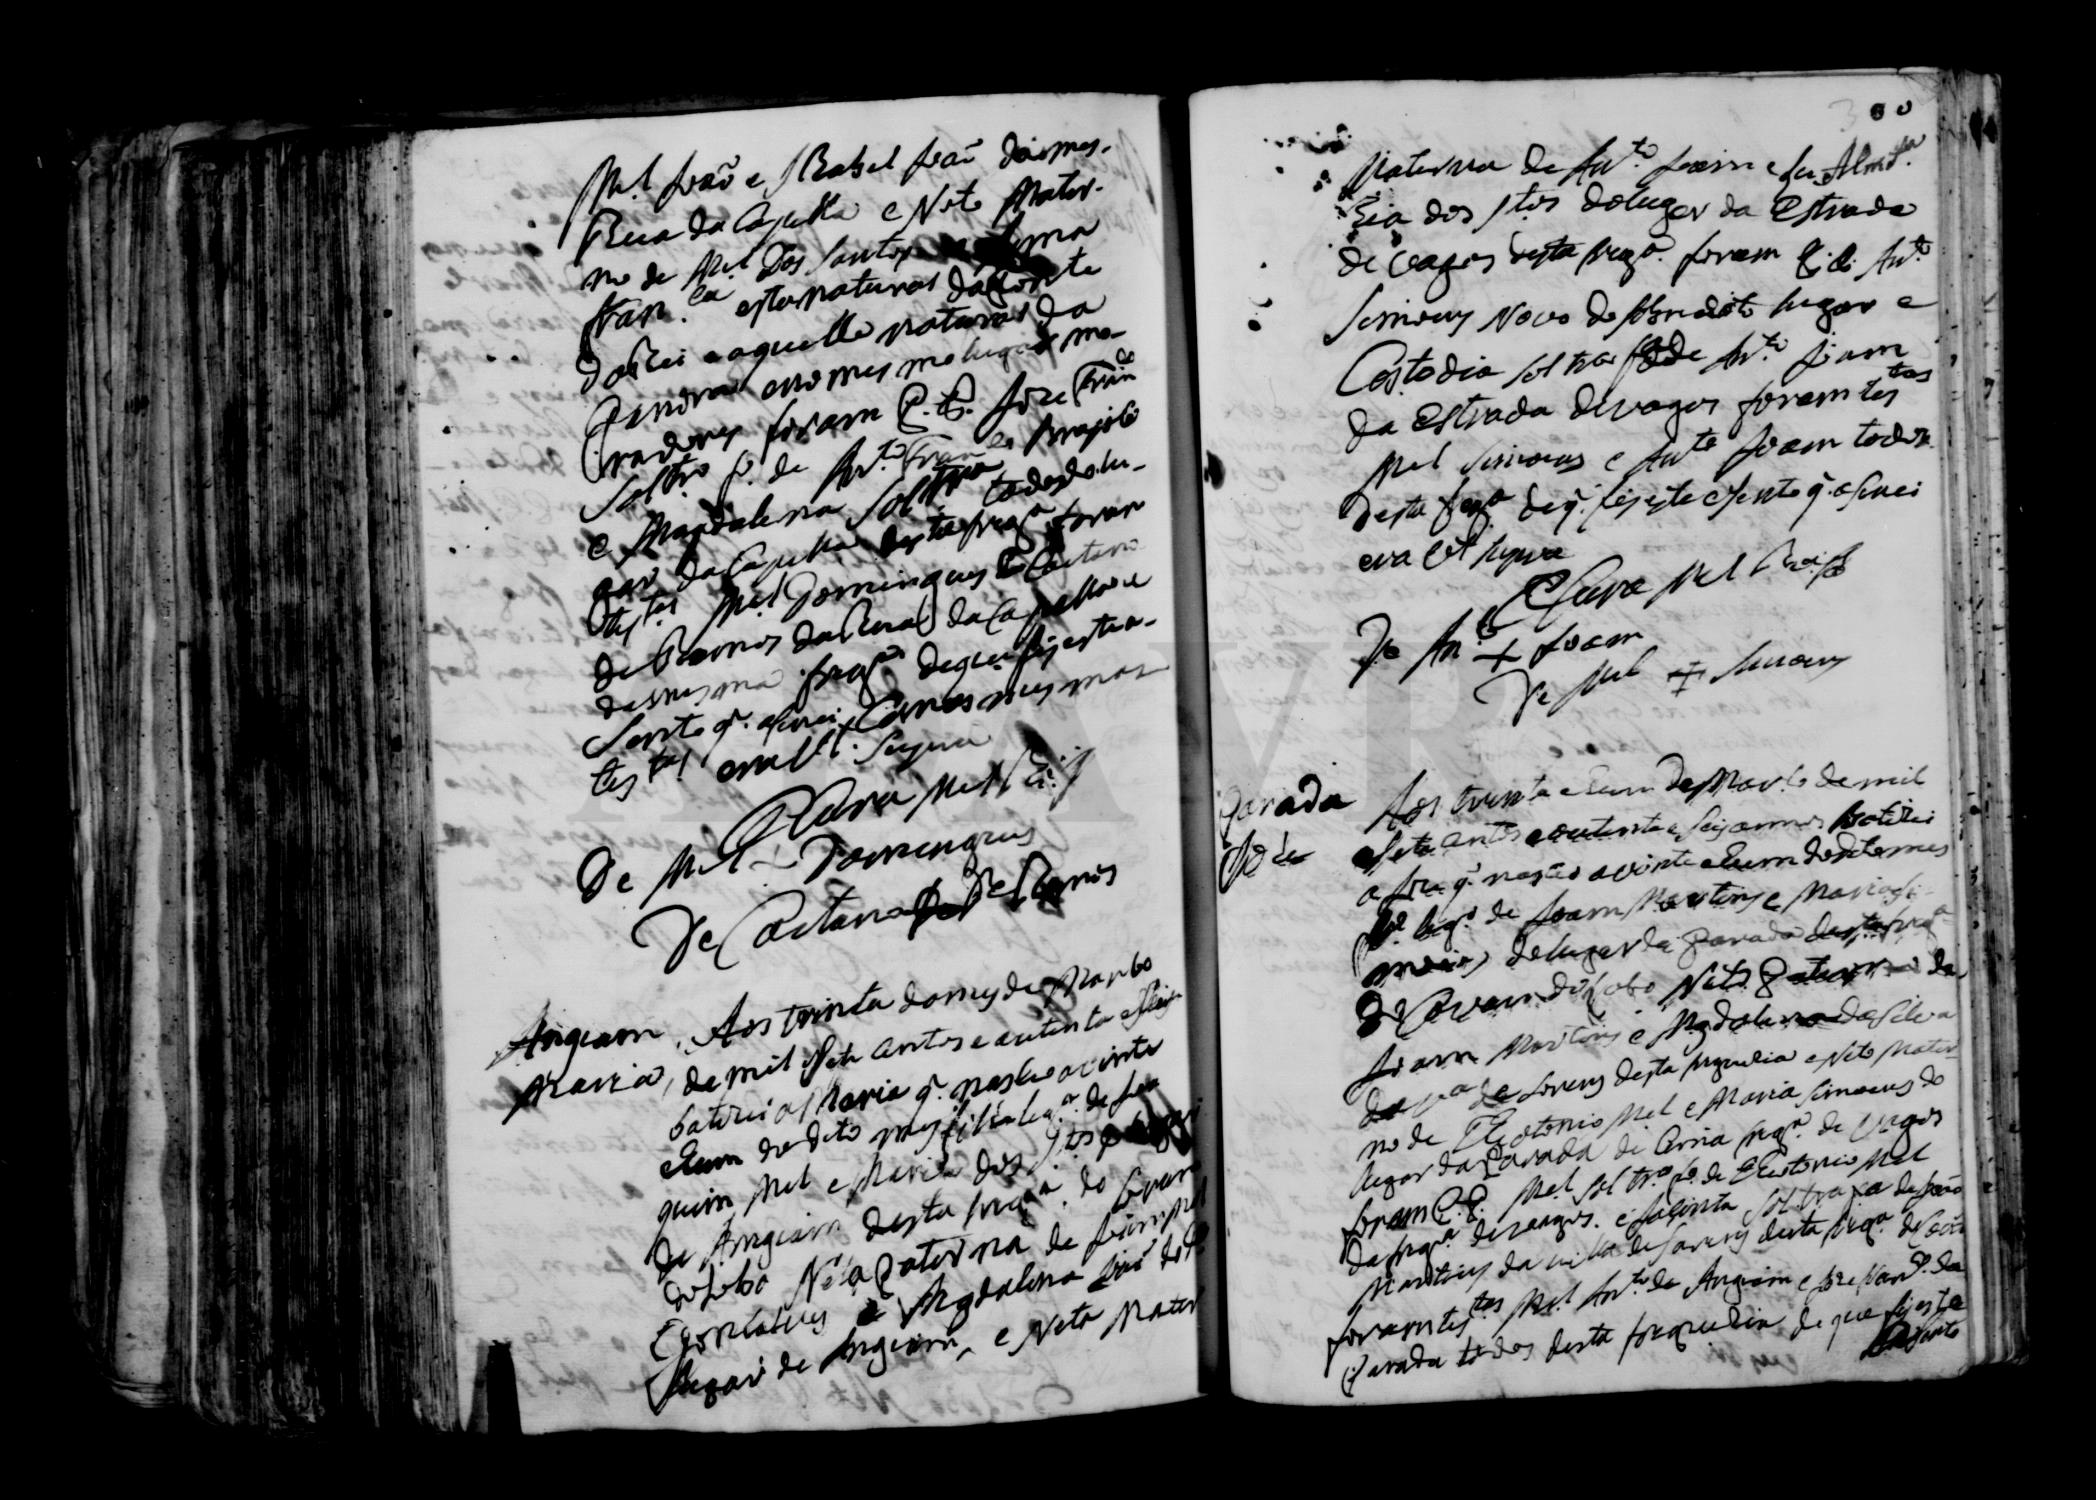 Mel João e Izabel João da mes-
Rua da Capella e Neto Mater-
no de Mel Dos Santos
Fran.ca esta natural da fonte
e aquelle natural da
e no mesmo lugar mo-
radores foram P.P. Joze Fran.do
Soltro f.o de An.to Fran.co
e Magdalena Soltra todos do lu-
gar da Capella desta freg.a foram
tes.tas Mel Domingues e Caetano
de Ramos da Rua da Capella e
da mesma freg.a de que fis esta a-
sento q. asinei com as mesmas
tes.tas era Ut Supra
O Cura Mel
De Mel + Domingues
De Caetano de Ramos
Angeam
Maria
Aos trinta do mes de Marso
de mil sete centos e outenta e seis
batizei a Maria q. nasceo a vinte
e hum do dito mes filha leg.a de Joa
quim Mel e Maria dos S.tos
de Angeam desta freg.a do Covam
do Lobo Neta Paterna de Joam Mel
Gonsalves e Magdalena João do d.o
lugar de Angeam, e Neta Mater
00
Materna de An.to Joam e su Alm
dos S.tos do lugar da Estrada
de Vagos desta freg.a foram P.P. An.to
Simoens Novo do sobredito lugar e
Costodia soltra f.a de An.to Joam
da Estrada de Vagos foram tes.tas
Mel Simoens e An.to Joam todos
desta freg.a de q. fis este asento q. asinei
era Ut supra
O Cura Mel
De An.to + Joam
De Mel + Simoens
Parada
Joze
Aos trinta e hum de Marso de mil
e sete centos e outenta e seis annos Batizei
a Joze q. nasceo a vinte e hum do dito mes
f.o leg.o de Joam Martins e Maria Si-
moens do lugar da Parada desta freg.a
do Covam do Lobo Neto Paterno de
Joam Martins e Magdalena da Silva
da v.a de Sorens desta freguezia e Neto Mater
no de Theotonio Mel e Maria Simoens do
lugar da Parada de Cima freg.a de Vagos
foram P.P. Mel soltro f.o de Theotonio Mel
da freg.a de Vagos. e Jacinta soltra f.a de João
Martins da villa de Sorens desta freg.a do Covão
foram tes.tas Mel An.to de Angeam e Joze Nan.des da
Parada todos desta freguezia de que fis este
asento